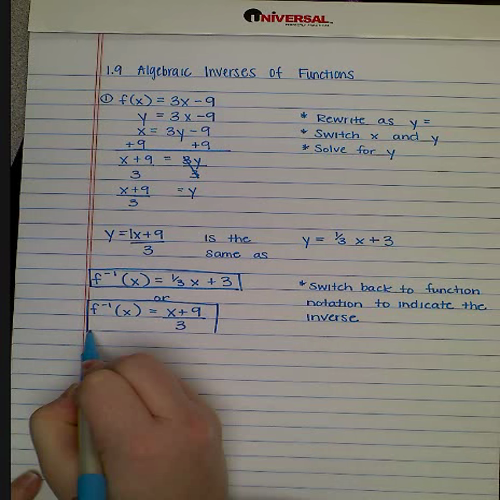 UNIVERSAL
1.9 Algebraic Inverses of Functions
① f(x) = 3x - 9
y = 3x - 9
* Rewrite as y =
x = 3y - 9
* Switch x and y
+9 +9
* Solve for y
x + 9 = 3y
3 3
x+9 = y
3
y = 1x+9 is the y = 1/3 x + 3
3 same as
f⁻¹(x) = 1/3 x + 3
* Switch back to function
or
notation to indicate the
f⁻¹(x) = x+9
inverse
3